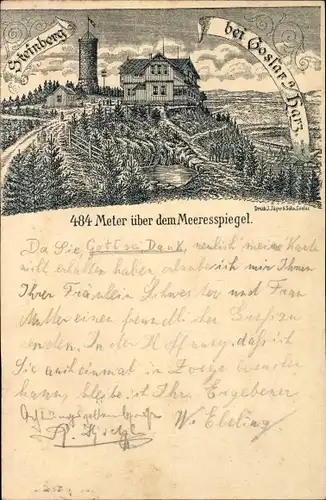 Steinberg
bei Goslar a/Harz
Druck J. Jäger & Sohn, Goslar.
484 Meter über dem Meeresspiegel.
Da Sie, Gott sei Dank, neulich meine Karte
nicht erhalten haben, erlaube ich mir Ihnen
Ihrer Fräulein Schwester und Frau
Mutter einen freundlichen Gruß zu
senden. In der Hoffnung, daß ich
Sie auch einmal in Zorge
kann, bleibe ich Ihr Ergebener
W. Ebeling.